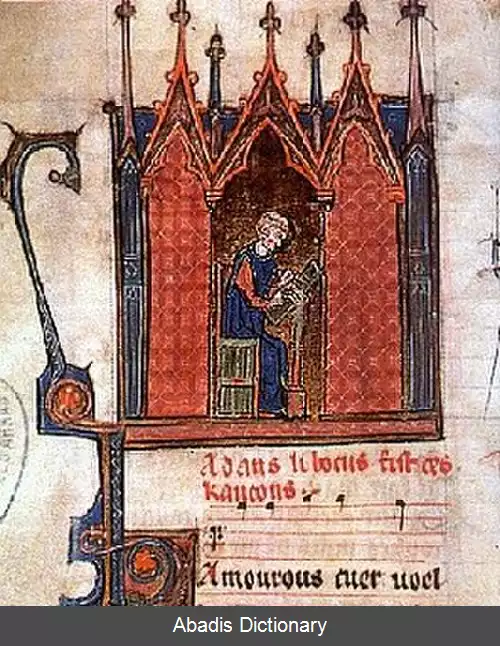 Adans li bocus fist ces
kancons
Amourous cuer uoel
Abadis Dictionary